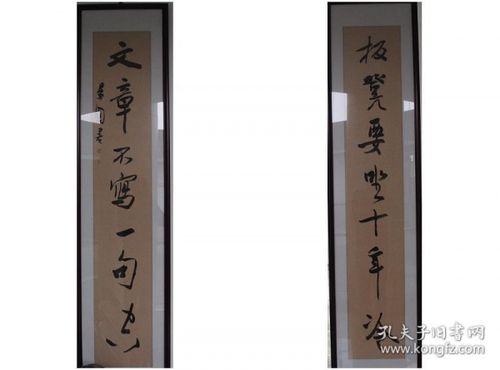 板凳要坐十年冷
文章不寫一句空
孔夫子旧书网
www.kongfz.com